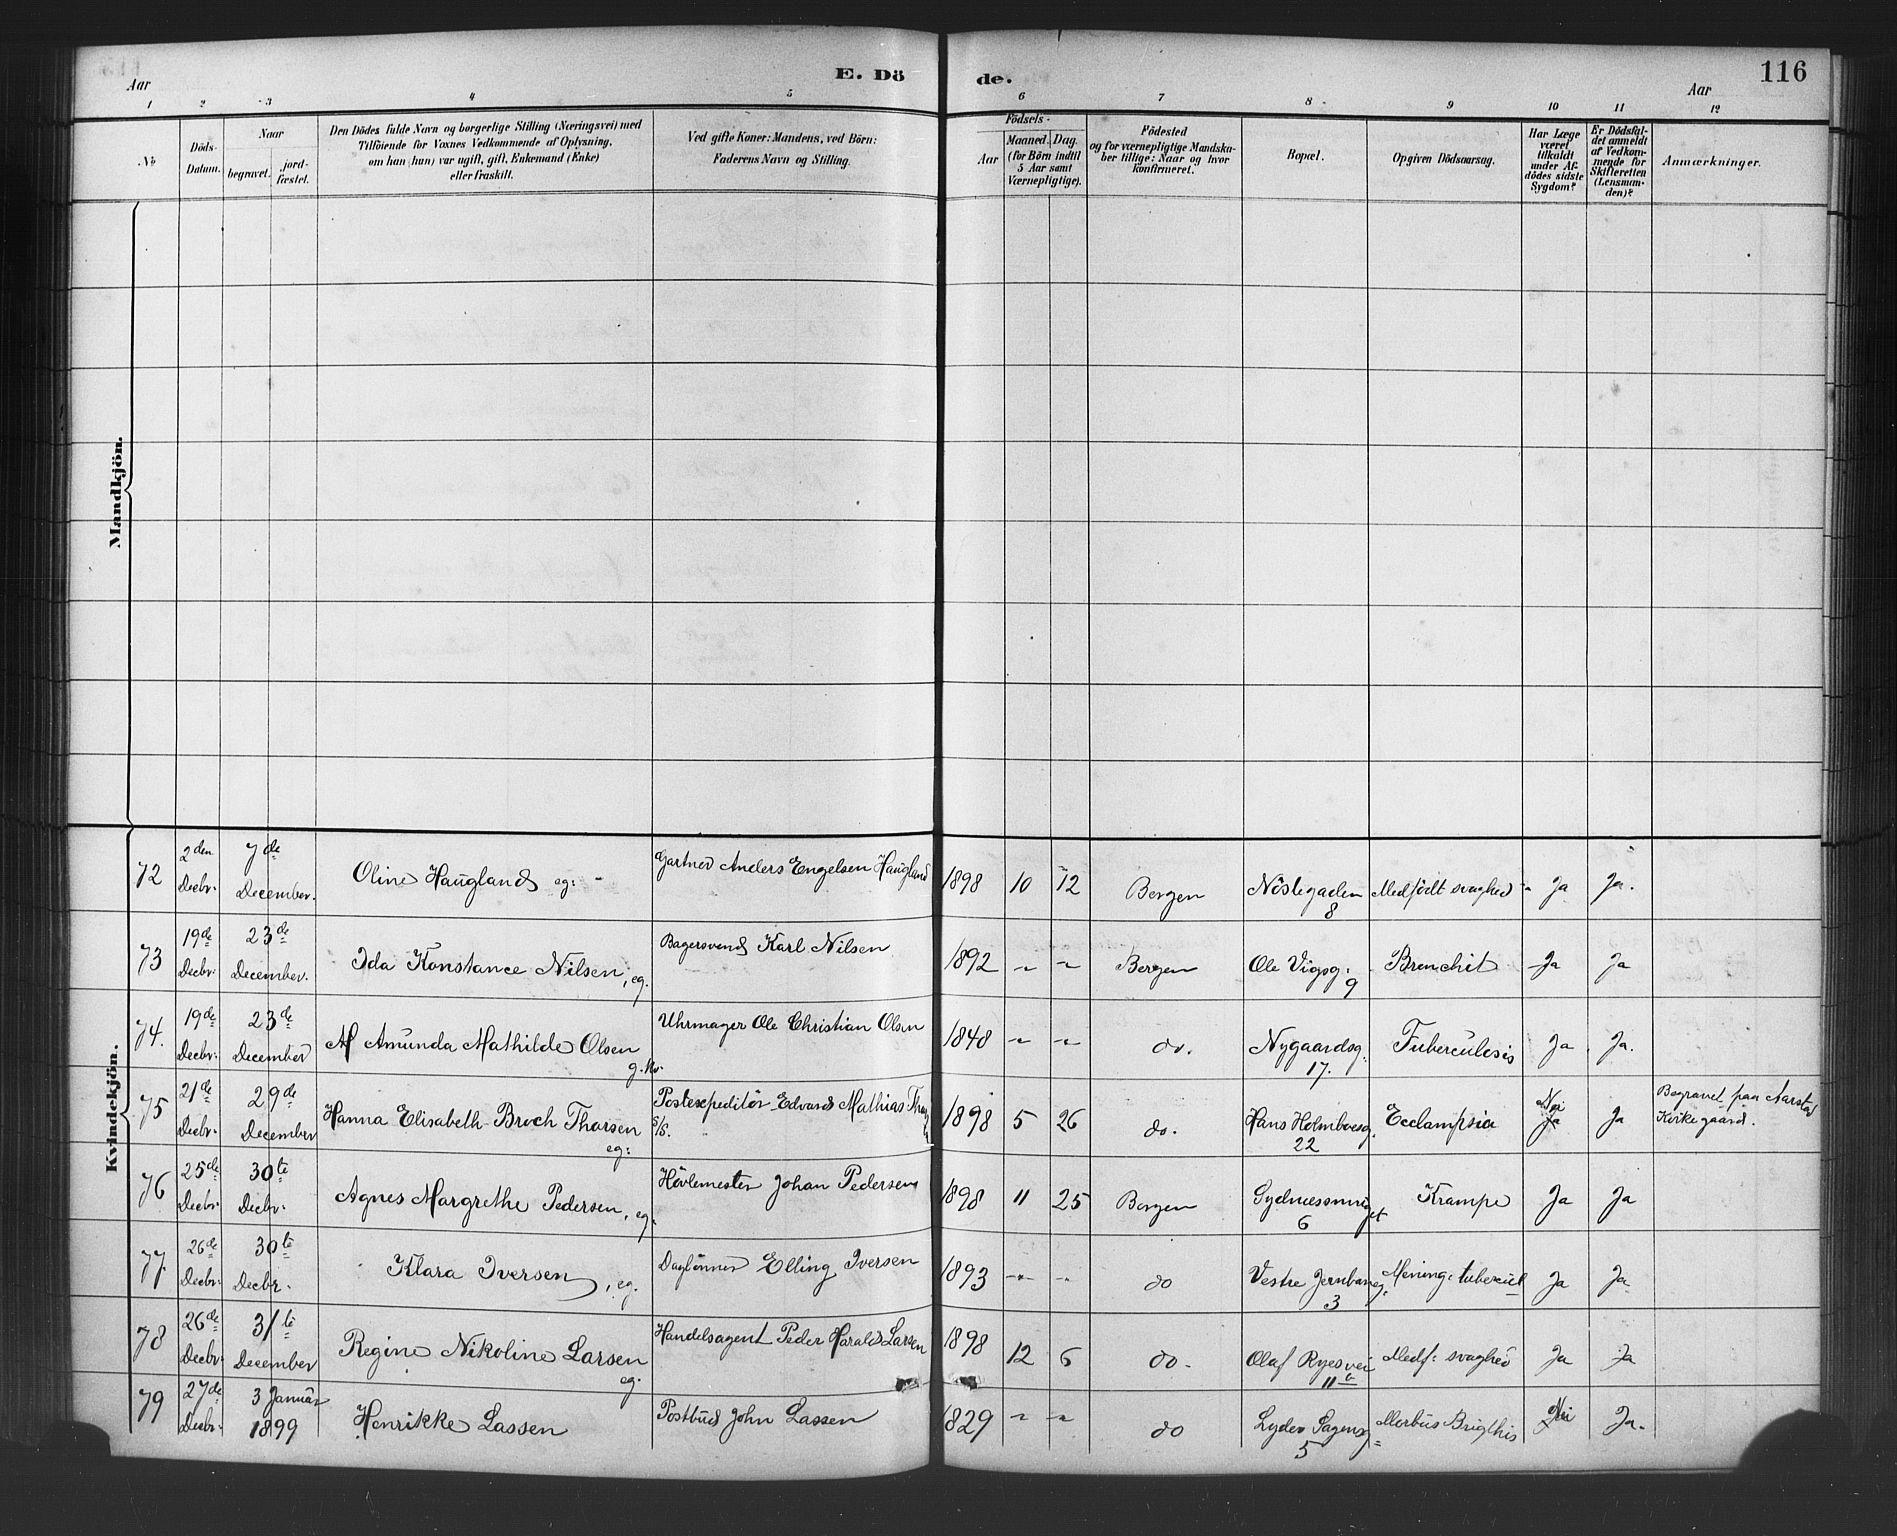 Aar
E. Dö
de.
Aar
116
1 2 3 4 5 6 7 8 9 10 11 12
No
Döds-
Datum.
Naar
begravet.
jord-
fæstet.
Den Dödes fulde Navn og borgerlige Stilling (Næringsvei) med
Tilföiende for Voxnes Vedkommende af Oplysning,
om han (hun) var ugift, gift, Enkemand (Enke)
eller fraskilt.
Ved gifte Koner: Mandens, ved Börn:
Faderens Navn og Stilling.
Födsels-
Aar
Maaned. Dag.
(for Börn indtil
5 Aar samt
Værnepligtige).
Födested
og for værnepligtige Mandska-
ber tillige: Naar og hvor
konfirmeret.
Bopæl.
Opgiven Dödsaarsag.
Har Læge
været
tilkaldt
under Af-
dödes sidste
Sygdom?
Er Dödsfal-
det anmeldt
af Vedkom-
mende for
Skifteretten
(Lensman-
den)?
Anmærkninger.
Mandkjön.
Kvindekjön.
72 2den Decbr. 7de December. Oline Haugland eg: Gartner Anders Engelsen Haugland 1898 10 12 Bergen Nöstegaden 8 Medfödt svaghed Ja Ja.
73 19de Decbr. 23de December. Ida Konstance Nilsen, eg. Bagersvend Karl Nilsen 1892 " " Bergen Ole Vigsg. 9 Bronchit Ja Ja
74. 19de Decbr. 23de December Amunda Mathilde Olsen g.Kv. Uhrmager Ole Christian Olsen 1848 " " do. Nygaardsg. 17. Tuberculosis Ja Ja.
75 21de Decbr. 29de December Hanna Elisabeth Broch Thorsen eg: Postexpeditör Edvard Mathias 1898 5 26 do. Hans Holmboesg. 22 Ecclampsia Nei Ja Begravet paa Aarstad Kirkegaard.
76 25de Decbr. 30te Decbr. Agnes Margrethe Pedersen, eg. Hövlemester Johan Pedersen 1898 11 25 Bergen Sydnæssmuget 6 Krampe Ja Ja
77 26de Decbr. 30te Decbr. Klara Iversen, eg. Daglönner Elling Iversen 1893 " " do Vestre Jernbaneg. 3 Mening: tubercul Ja Ja
78 26de Decbr. 31te December Regine Nikoline Larsen eg. Handelsagent Peder Harald Larsen 1898 12 6 do. Olaf Ryesvei 11b Medf: svaghed Ja Ja
79 27de Decbr. 3 Januar 1899 Henrikke Lassen Postbud John Lassen 1829 " " do Lyder Sagensg 5 Morbus Brigthis Nei Ja.